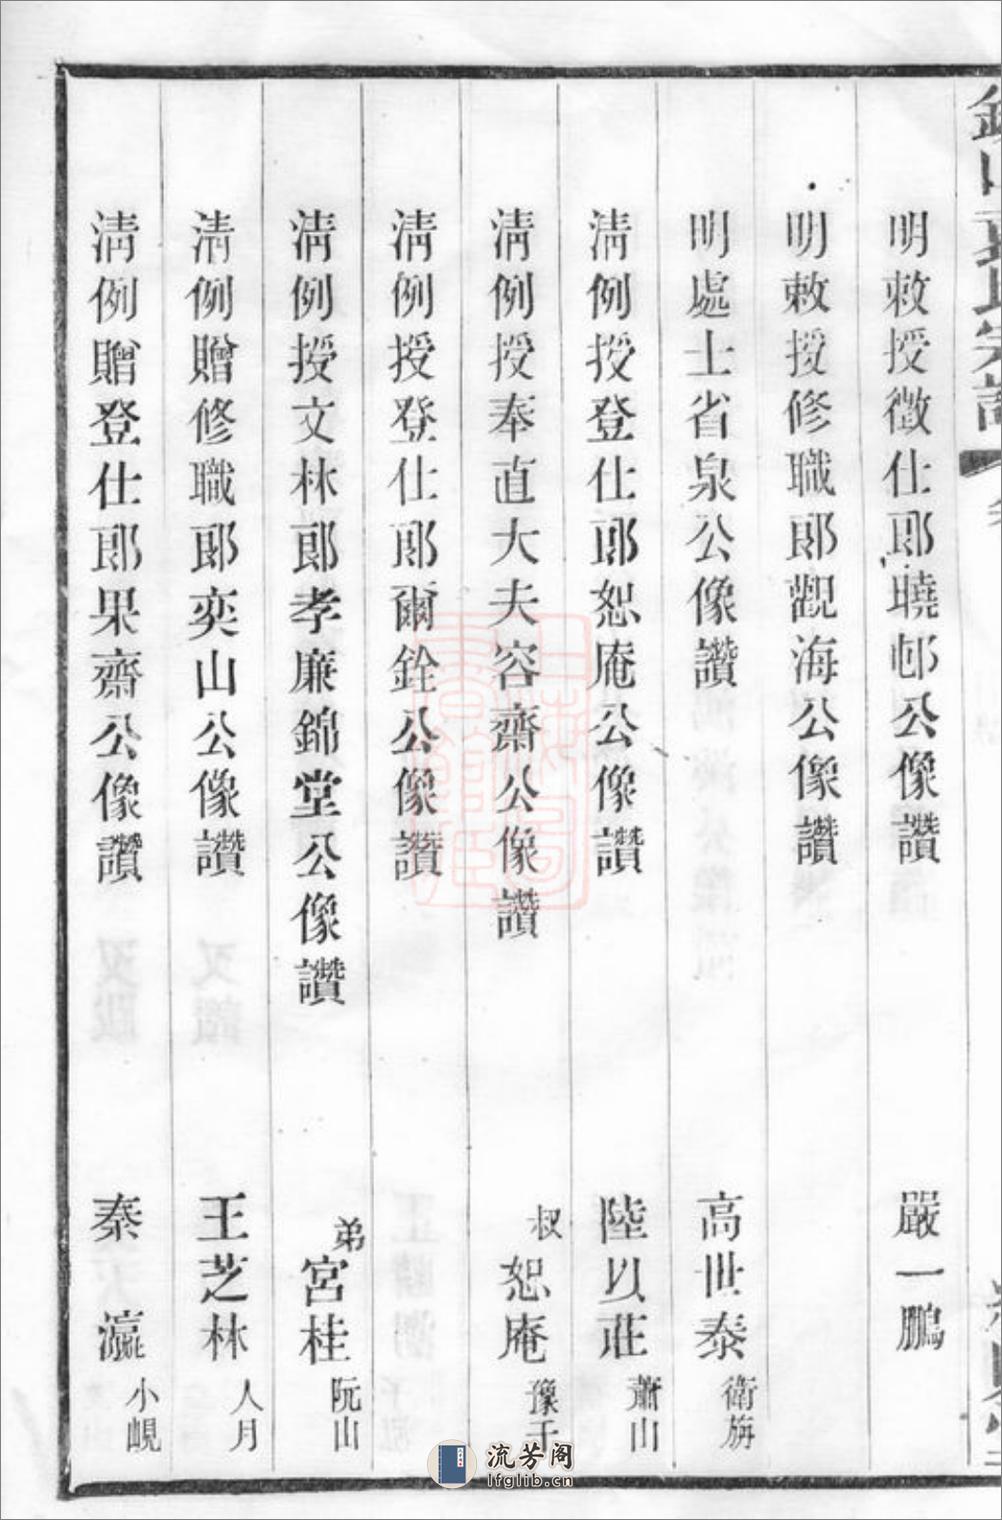 明敕授徵仕郎曉邨公像讚 嚴一鵬
明敕授修職郎觀海公像讚
明處士省泉公像讚 高世泰 衛旃
清例授登仕郎恕庵公像讚 陸以莊 蕭山
清例授奉直大夫容齋公像讚 叔 恕庵 豫千
清例授登仕郎爾銓公像讚
清例授文林郎孝廉錦堂公像讚 弟 宮桂 阮山
清例贈修職郎奕山公像讚 王芝林 人月
清例贈登仕郎果齋公像讚 秦瀛 小峴
流芳阁
lfglib.cn